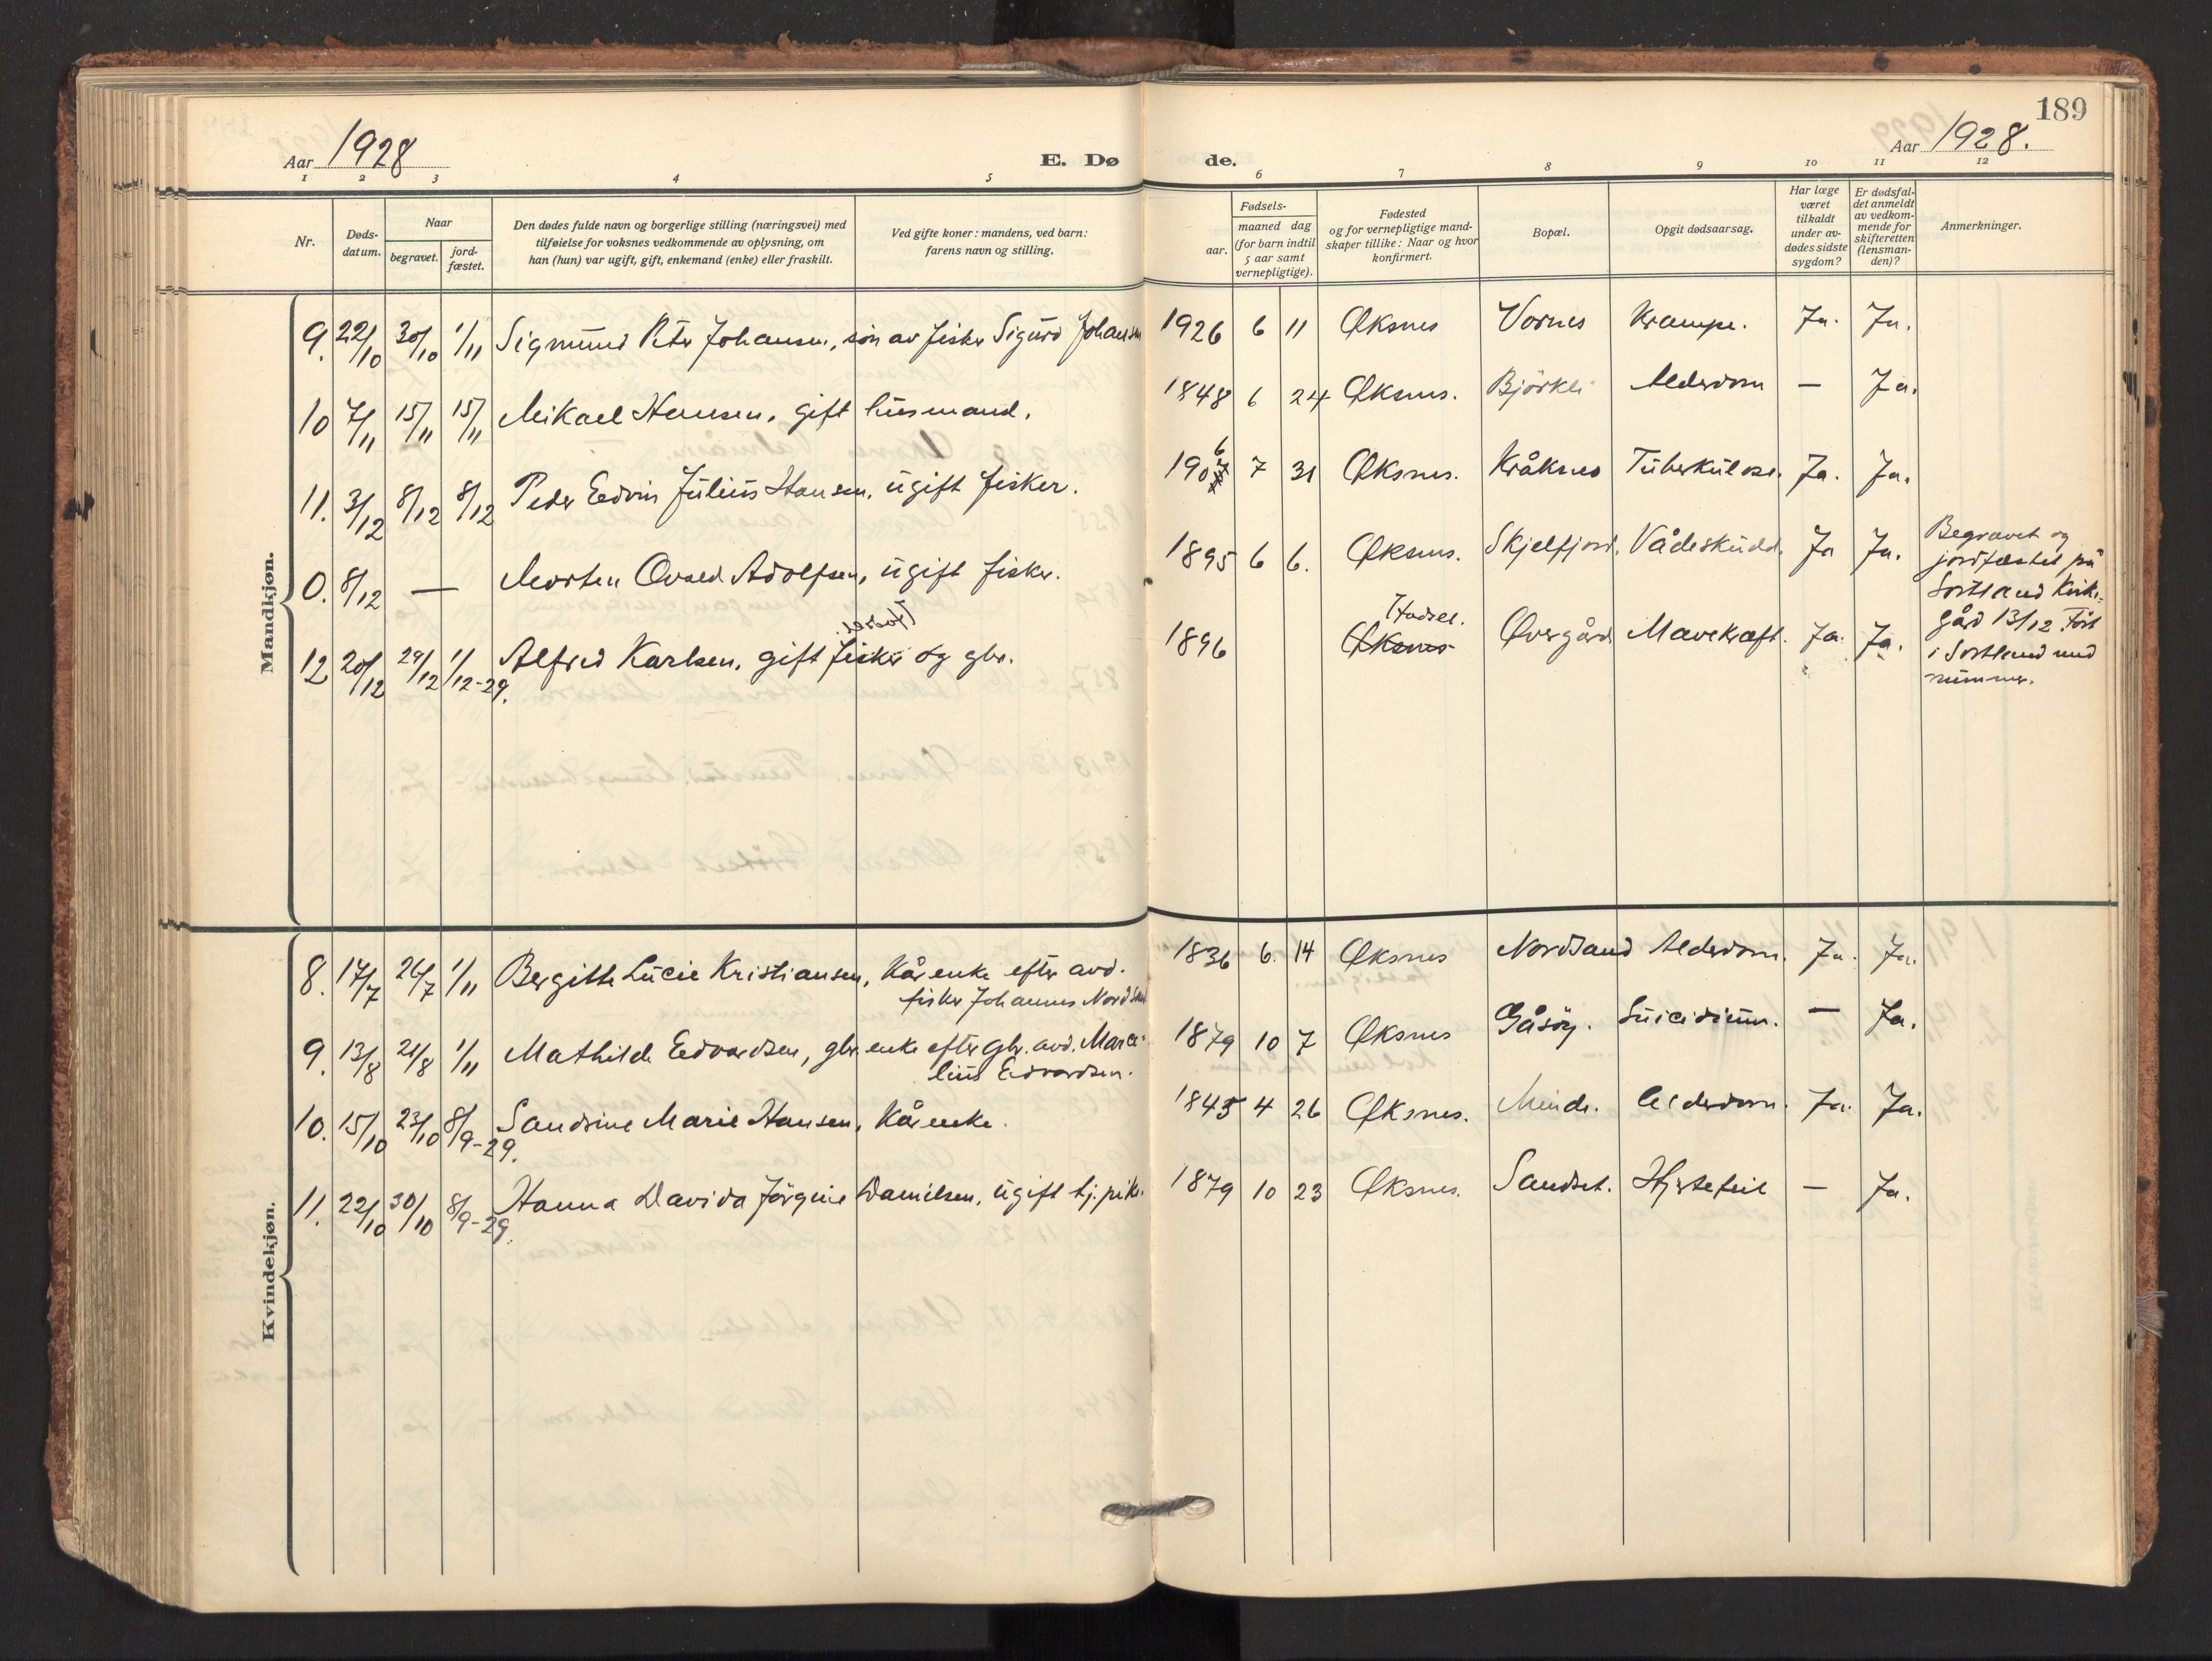 189
Aar 1928
E. Dø
de.
Aar 1928.
1 2 3 4 5 6 7 8 9 10 11 12
Nr.
Døds-
datum.
Naar
begravet.
jord-
fæstet.
Den dødes fulde navn og borgerlige stilling (næringsvei) med
tilføielse for voksnes vedkommende av oplysning, om
han (hun) var ugift, gift, enkemand (enke) eller fraskilt.
Ved gifte koner: mandens, ved barn:
farens navn og stilling.
Fødsels-
aar.
maaned dag
(for barn indtil
5 aar samt
vernepligtige).
Fødested
og for vernepligtige mand-
skaper tillike: Naar og hvor
konfirmert.
Bopæl.
Opgit dødsaarsag.
Har læge
været
tilkaldt
under av-
dødes sidste
sygdom?
Er dødsfal-
det anmeldt
av vedkom-
mende for
skifteretten
(lensman-
den)?
Anmerkninger.
Mandkjøn.
9. 22/10 30/10 1/11 Sigmund Peter Johansen, søn av fisker Sigurd Johansen 1926 6 11 Øksnes Vornes Krampe. Ja. Ja.
10 7/11 15/11 15/11 Mikael Hansen, gift husmand. 1848 6 24 Øksnes. Björkli Alderdom — Ja.
11. 3/12 8/12 8/12 Peder Edvin Julius Hansen, ugift fisker. 1906 7 31 Øksnes. Kråknes Tuberkulose. Ja. Ja.
0. 8/12 — Morten Osvald Adolfsen, ugift fisker. 1895 6 6. Øksnes. Skjelfjord. Vådeskudd. Ja Ja.
Begravet og
jordfæstet på
Sortland Kirke-
gård 13/12. Ført
i Sortland med
nummer.
Hadsel.
12 20/12 29/12 1/12-29. Alfred Karlsen, gift fisker og gbr. 1896 Øksnes Øvergård Mavekræft. Ja. Ja.
Hadsel.
Kvindekjøn.
8. 17/7 26/7 1/11 Bergitte Lucie Kristiansen, Kårenke efter avd. 1836 6. 14 Øksnes Nordsand Alderdom. Ja. Ja.
fisker Johannes Nordsand
9. 13/8 21/8 1/11 Mathilde Edvardsen, gbr. enke efter gbr. avd. Marce- 1879 10 7 Øksnes Gåsöy. Suicidium. — Ja.
lius Edvardsen.
10. 15/10 23/10 8/9-29. Sandrine Marie Hansen, Kårenke. 1845 4 26 Øksnes. Meinde. Alderdom. Ja. Ja.
11. 22/10 30/10 8/9-29. Hanna Davida Jörgine Danielsen, ugift tj. pike. 1879 10 23 Øksnes. Sandset. Hjertefeil — Ja.